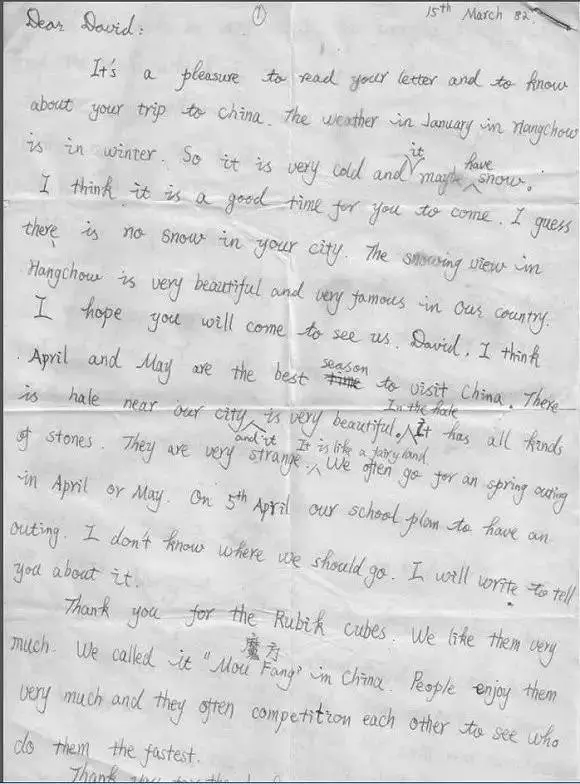 ①
15th March 82
Dear David:
It's a pleasure to read your letter and to know
about your trip to China. The weather in January in Hangchow
is in winter. So it is very cold and it maybe have snow.
I think it is a good time for you to come. I guess
there is no snow in your city. The snowing view in
Hangchow is very beautiful and very famous in our country.
I hope you will come to see us. David, I think
April and May are the best season to visit China. There
is hale near our city and it is very beautiful. In the hale it has all kinds
of stones. They are very strange. It is like a fairyland. We often go for an spring outing
in April or May. On 5th April our school plan to have an
outing. I don't know where we should go. I will write to tell
you about it.
Thank you for the Rubik cubes. We like them very
much. We called it "Mou Fang" 魔方 in China. People enjoy them
very much and they often competition each other to see who
do them the fastest.
Thank you for the